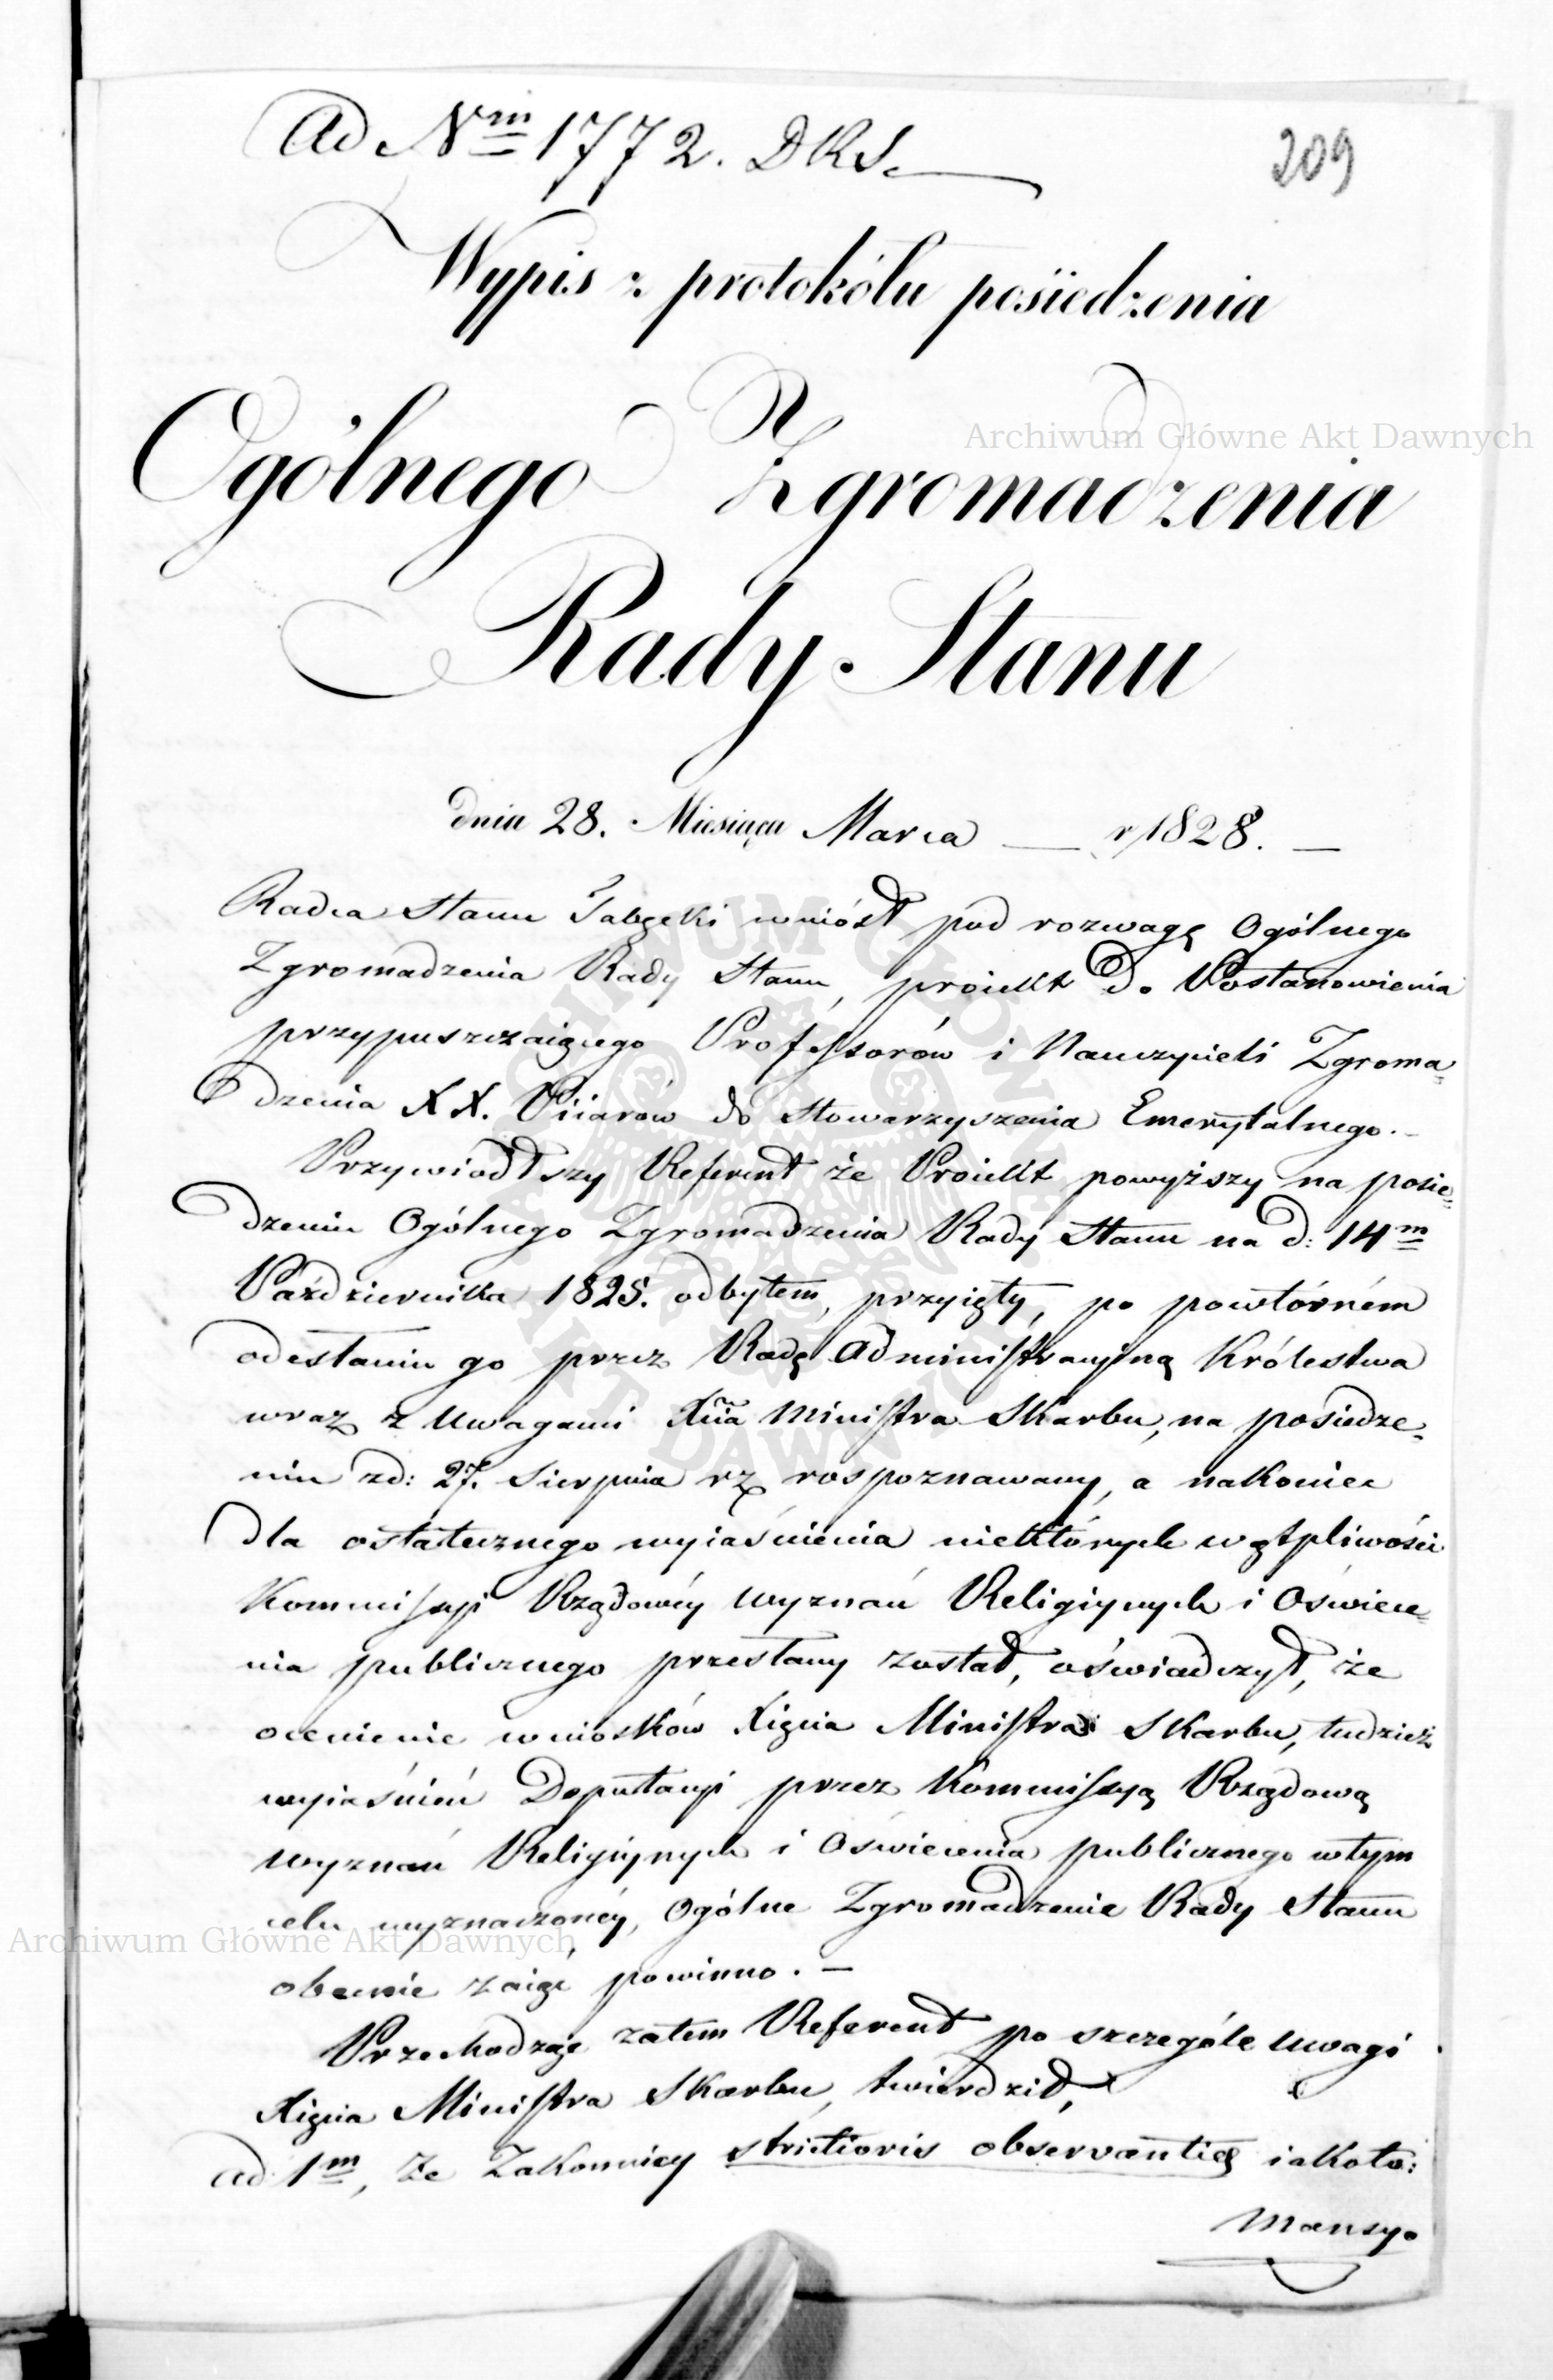 Ad Nm 1772. DRS.
209
Wypis z protokółu posiedzenia
Ogólnego Zgromadzenia
Rady Stanu
dnia 28. Miesiąca Marca — r. 1828. —
Radca Stanu wniósł pod rozwagę Ogólnego
Zgromadzenia Rady Stanu, proiekt do Postanowienia
przypuszczaiącego Professorów i Nauczycieli Zgroma=
dzenia XX. Piiarów do Stowarzyszenia Emerytalnego.—
Przywiodłszy Referent że Proiekt powyższy na posie=
dzeniu Ogólnego Zgromadzenia Rady Stanu na d: 14m
Października 1825. odbytem, przyięty, po powtórném
odesłaniu go przez Radę Administracyjną Królestwa
wraz z Uwagami Xcia Ministra Skarbu, na posiedze=
niu z d: 27. Sierpnia rz rospoznawany, a nakoniec
dla ostatecznego wyiaśnienia niektórych wątpliwości
Kommissyi Rządowéy Wyznań Religiynych i Oświece=
nia publicznego przesłany został, oświadczył, że
ocenienie wniosków Xięcia Ministra Skarbu, tudzież
wyiaśnień Deputacyi przez Kommissyą Rządową
Wyznań Religiynych i Oświecenia publicznego w tym
celu wyznaczonéy, Ogólne Zgromadzenie Rady Stanu
obecnie zaiąć powinno. —
Przechodząc zatem Referent po szczególe uwagi
Xięcia Ministra Skarbu, twierdził,
ad 1m, że Zakonnicy strictioris observantiae iakoto:
Mansyo
Archiwum Główne Akt Dawnych
Archiwum Główne Akt Dawnych
ARCHIWUM GŁÓWNE AKT DAWNYCH